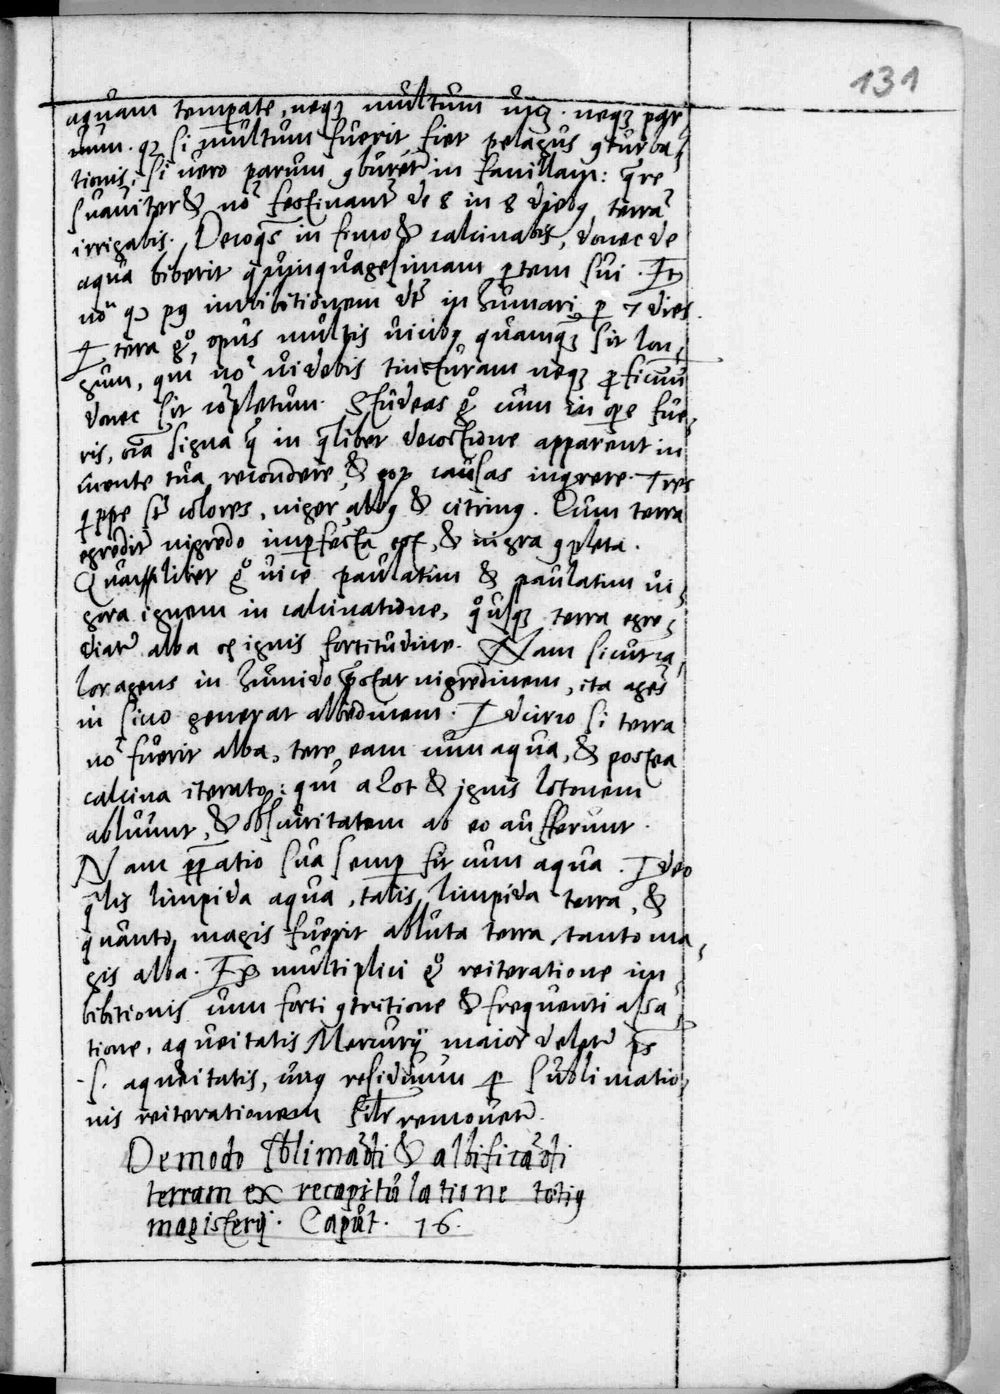 131
aquam temperate, neqꝫ multum viꝫ. neqꝫ par
num. qꝫ si multum fuerit fiet pelagus ꝯturba⸗
tionis, si vero parum ꝯburet͛ in favillam: qͣre
suaviter & nō festinant͛ de 8 in 8 diebꝰ, terrā
irrigabis. Decoq̄s in fimo & calcinabis, donec de
aqua biberit quinquagesimam ꝑtem sui.
nō pꝰ imbibitionem dꝫ inhumari ꝑ 7 dies.
terra gͦ, opus multis vicibꝰ quamqꝫ sit lon⸗
gum, qui nō videbis tincturam neqꝫ ꝓficuū
donec sit cōpletum. Studeas gͦ cum in oꝑe fue⸗
ris, oīa signa q̄ in qͣlibet decoctione apparent in
mente tua recondere, & eoꝝ causas inqrere. Tres
qͥppe st̄ colores, niger, albꝰ & citrinꝰ. Cum terra
egredit͛ nigredo imꝑfecta est, & nigra ꝯpleta.
Qualibet gͦ vice paulatim & paulatim vi⸗
gora ignem in calcinatione, qͦusqꝫ terra egre⸗
diat͛ alba ex ignis fortitudine. Nam sicut ca⸗
lor agens in humido gn̄at nigredinem, ita agēs
in sicco generat albedinem. Idcirco si terra
nō fuerit alba, tere eam cum aqua, & postea
calcina iterato: qui azot & ignis latonem
abluunt, & obscuritatem ab eo aufferunt.
Nam p̄ꝑatio sua semꝑ fit cum aqua. Ideo
qͣlis limpida aqua, talis limpida terra, &
quanto magis fuerit abluta terra, tanto ma⸗
gis alba. multiplici gͦ reiteratione im
bibitionis cum forti ꝯtritione & frequenti assa⸗
tione, aqueitatis Mercurij maior delet͛ ꝑs
.s. aqueitatis, cuiꝰ residuum ꝑ sublimatio⸗
nis reiterationem sil͛r removet͛.
De modo sublimādi & albificādi
terram ex recapitulatione totiꝰ
magisterij. Caput. 16.